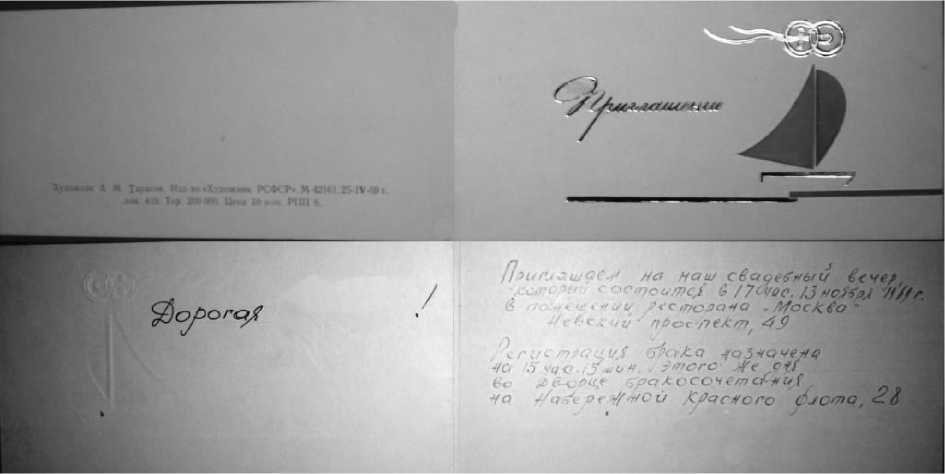 Приглашение
Художник А. М. Тарасов. Изд-во «Художник РСФСР». М-42161. 25-IV-69 г.
зак. Тир. 200 000. Цена 10 коп. РПП
Дорогая !
Приглашаем на наш свадебный вечер,
который состоится в 17 час. 13 ноября г.
в помещении ресторана „Москва"
Невский проспект, 49
Регистрация брака назначена
на 15 час. 15 мин. этого же дня
во Дворце бракосочетания
на Набережной Красного флота, 28